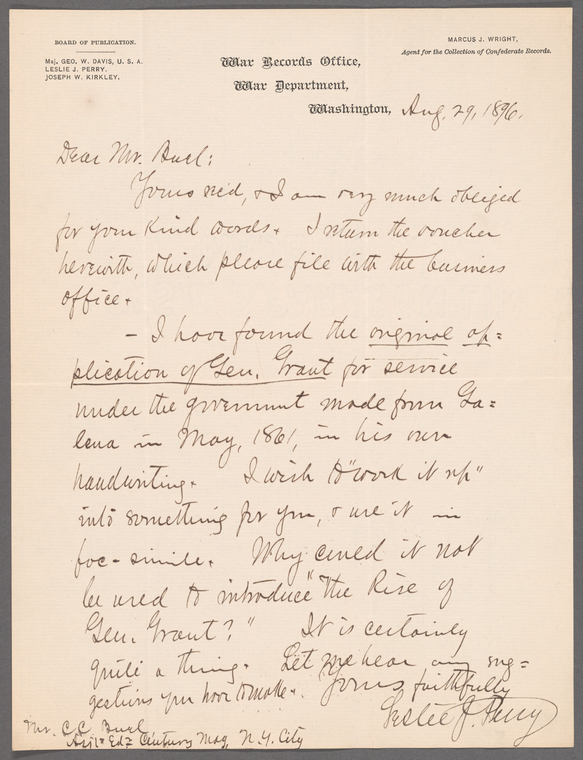 BOARD OF PUBLICATION.
Maj. GEO. W. DAVIS, U. S. A.
LESLIE J. PERRY.
JOSEPH W. KIRKLEY.
MARCUS J. WRIGHT,
Agent for the Collection of Confederate Records.
War Records Office,
War Department,
Washington, Aug. 29, 1896.
Dear Mr. Buel:
Yours rec'd, & I am very much obliged
for your kind words. I return the voucher
herewith, which please file with the business
office.
- I have found the original ap=
plication of Gen. Grant for service
under the government made from Ga=
lena in May, 1861, in his own
handwriting. I wish to "work it up"
into something for you, & use it in
fac-simile. Why could it not
be used to introduce "the Rise of
Gen. Grant?" It is certainly
quite a thing. Let me hear any sug=
gestions you have to make. Yours faithfully
Leslie J. Perry
Mr. C.C. Buel
Ass't Ed. Century Mag, N.Y. City